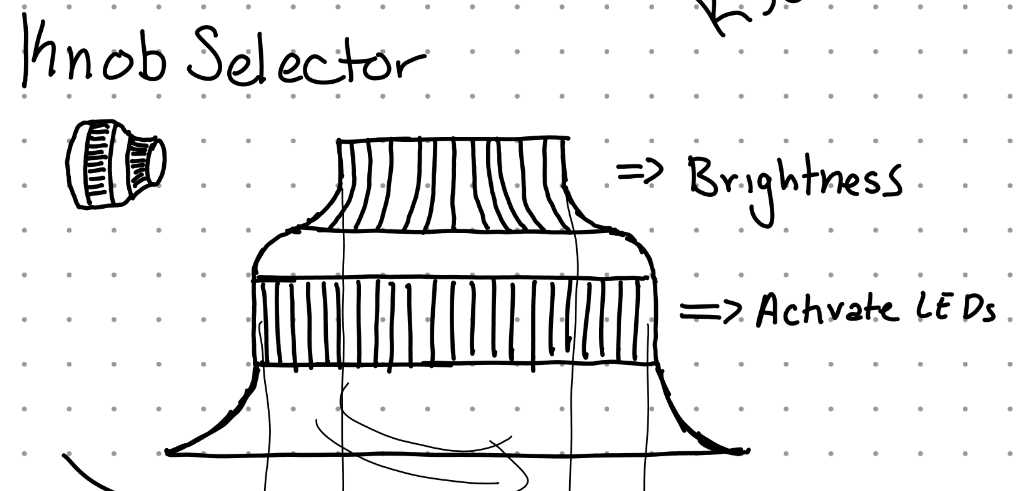 Knob Selector
=> Brightness
=> Activate LEDs